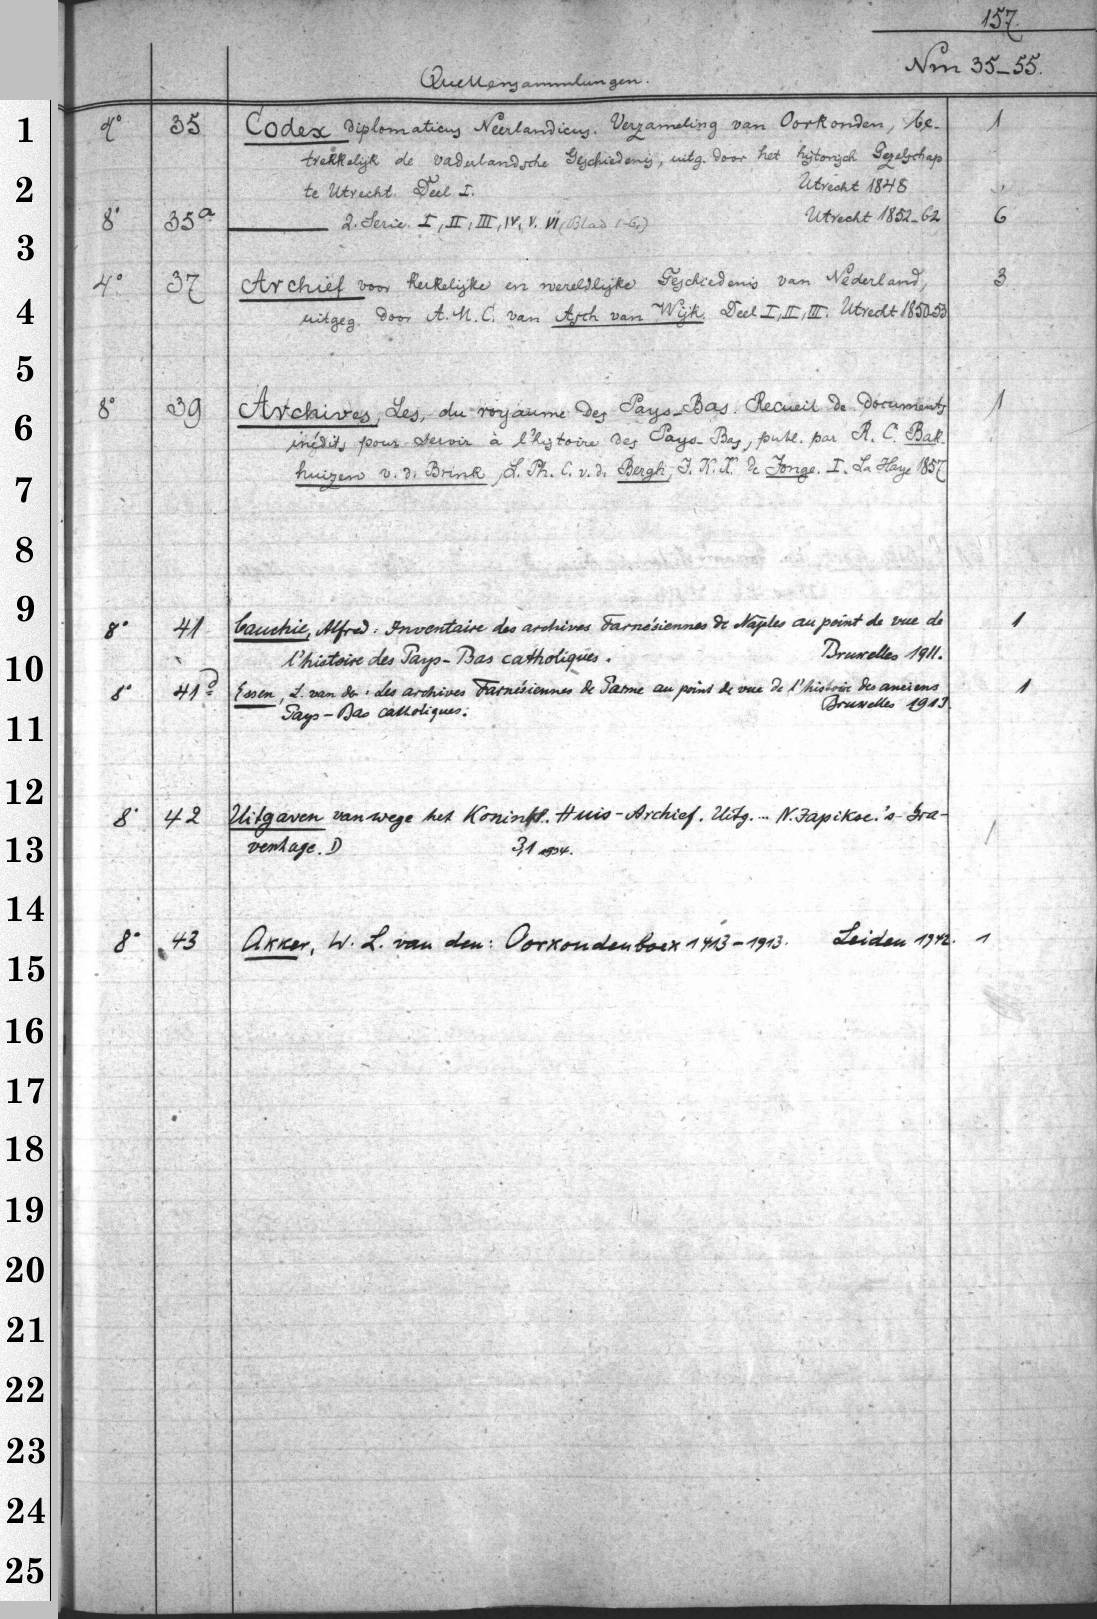 157.
Nrn 35-55.
Quellensammlungen.
1
4° 35 Codex diplomaticus Neerlandicus. Verzameling van Oorkonden, be- 1
trekkelijk de vaderlandsche Geschiedenis, uitg. door het historisch Gezelschap
2
te Utrecht. Deel I. Utrecht 1848
8° 35a 2. Serie. I, II, III, IV, V. VI (Blad 1-6.) Utrecht 1852-62 6
3
4° 37 Archief voor kerkelijke en wereldlijke Geschiedenis van Nederland, 3
4
uitgeg. door A. M. C. van Asch van Wijk. Deel I, II, III. Utrecht 1850-53
5
8° 39 Archives, Les, du royaume des Pays-Bas. Recueil de documents 1
6
inédits pour servir à l'histoire des Pays-Bas, publ. par R. C. Bak-
huizen v. d. Brink, L. Ph. C. v. d. Bergh, J. K. J. de Jonge. I. La Haye 1857
7
8
9
8° 41 Cauchie, Alfred: Inventaire des archives Farnésiennes de Naples au point de vue de 1
l'histoire des Pays-Bas catholiques. Bruxelles 1911.
10
8° 41d Essen, L. van der: Les archives Farnésiennes de Parme au point de vue de l'histoire des anciens 1
Pays-Bas catholiques. Bruxelles 1913.
11
12
8° 42 Uitgaven vanwege het Koninkl. Huis-Archief. Uitg. ... N. Japikse. 's-Gra- 1
13
venhage. D 3,1 1934.
14
8° 43 Akker, W. L. van den: Oorkondenboek 1413-1913. Leiden 1942. 1
15
16
17
18
19
20
21
22
23
24
25